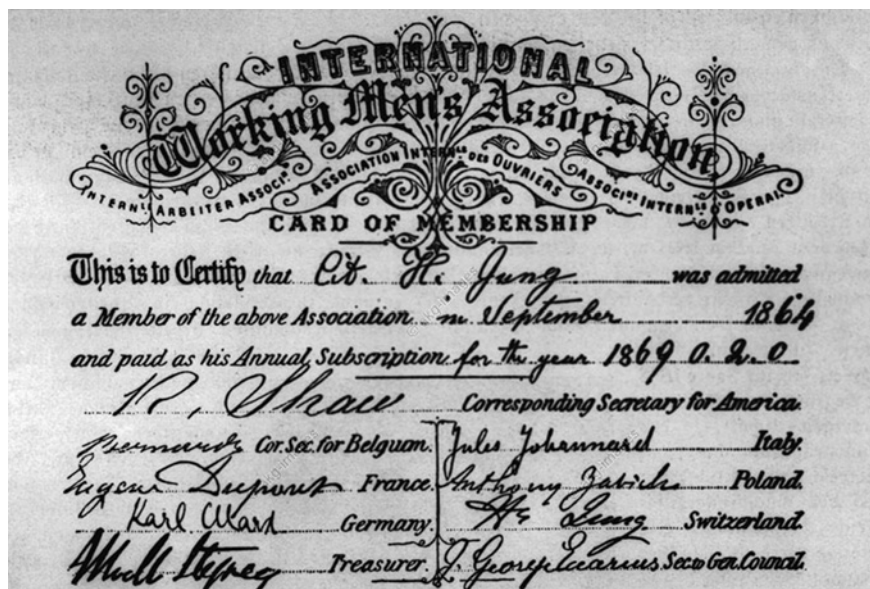 INTERNATIONAL
Working Men's Association
INTERN.LE ARBEITER ASSOCI.N ASSOCIATION INTERN.LE DES OUVRIERS ASSOCI.NE INTERN.LE D'OPERAI.
CARD OF MEMBERSHIP
This is to Certify that Cit. H. Jung was admitted
a Member of the above Association in September 1864
and paid as his Annual Subscription for the year 1869 0.2.0
R. Shaw Corresponding Secretary for America.
Bernard Cor. Sec. for Belguan. Jules Johannard Italy.
Eugene Dupont France. Anthony Zabicki Poland.
Karl Marx Germany. H. Jung Switzerland.
Treasurer. J. George Eccarius Sec. to Gen. Council.